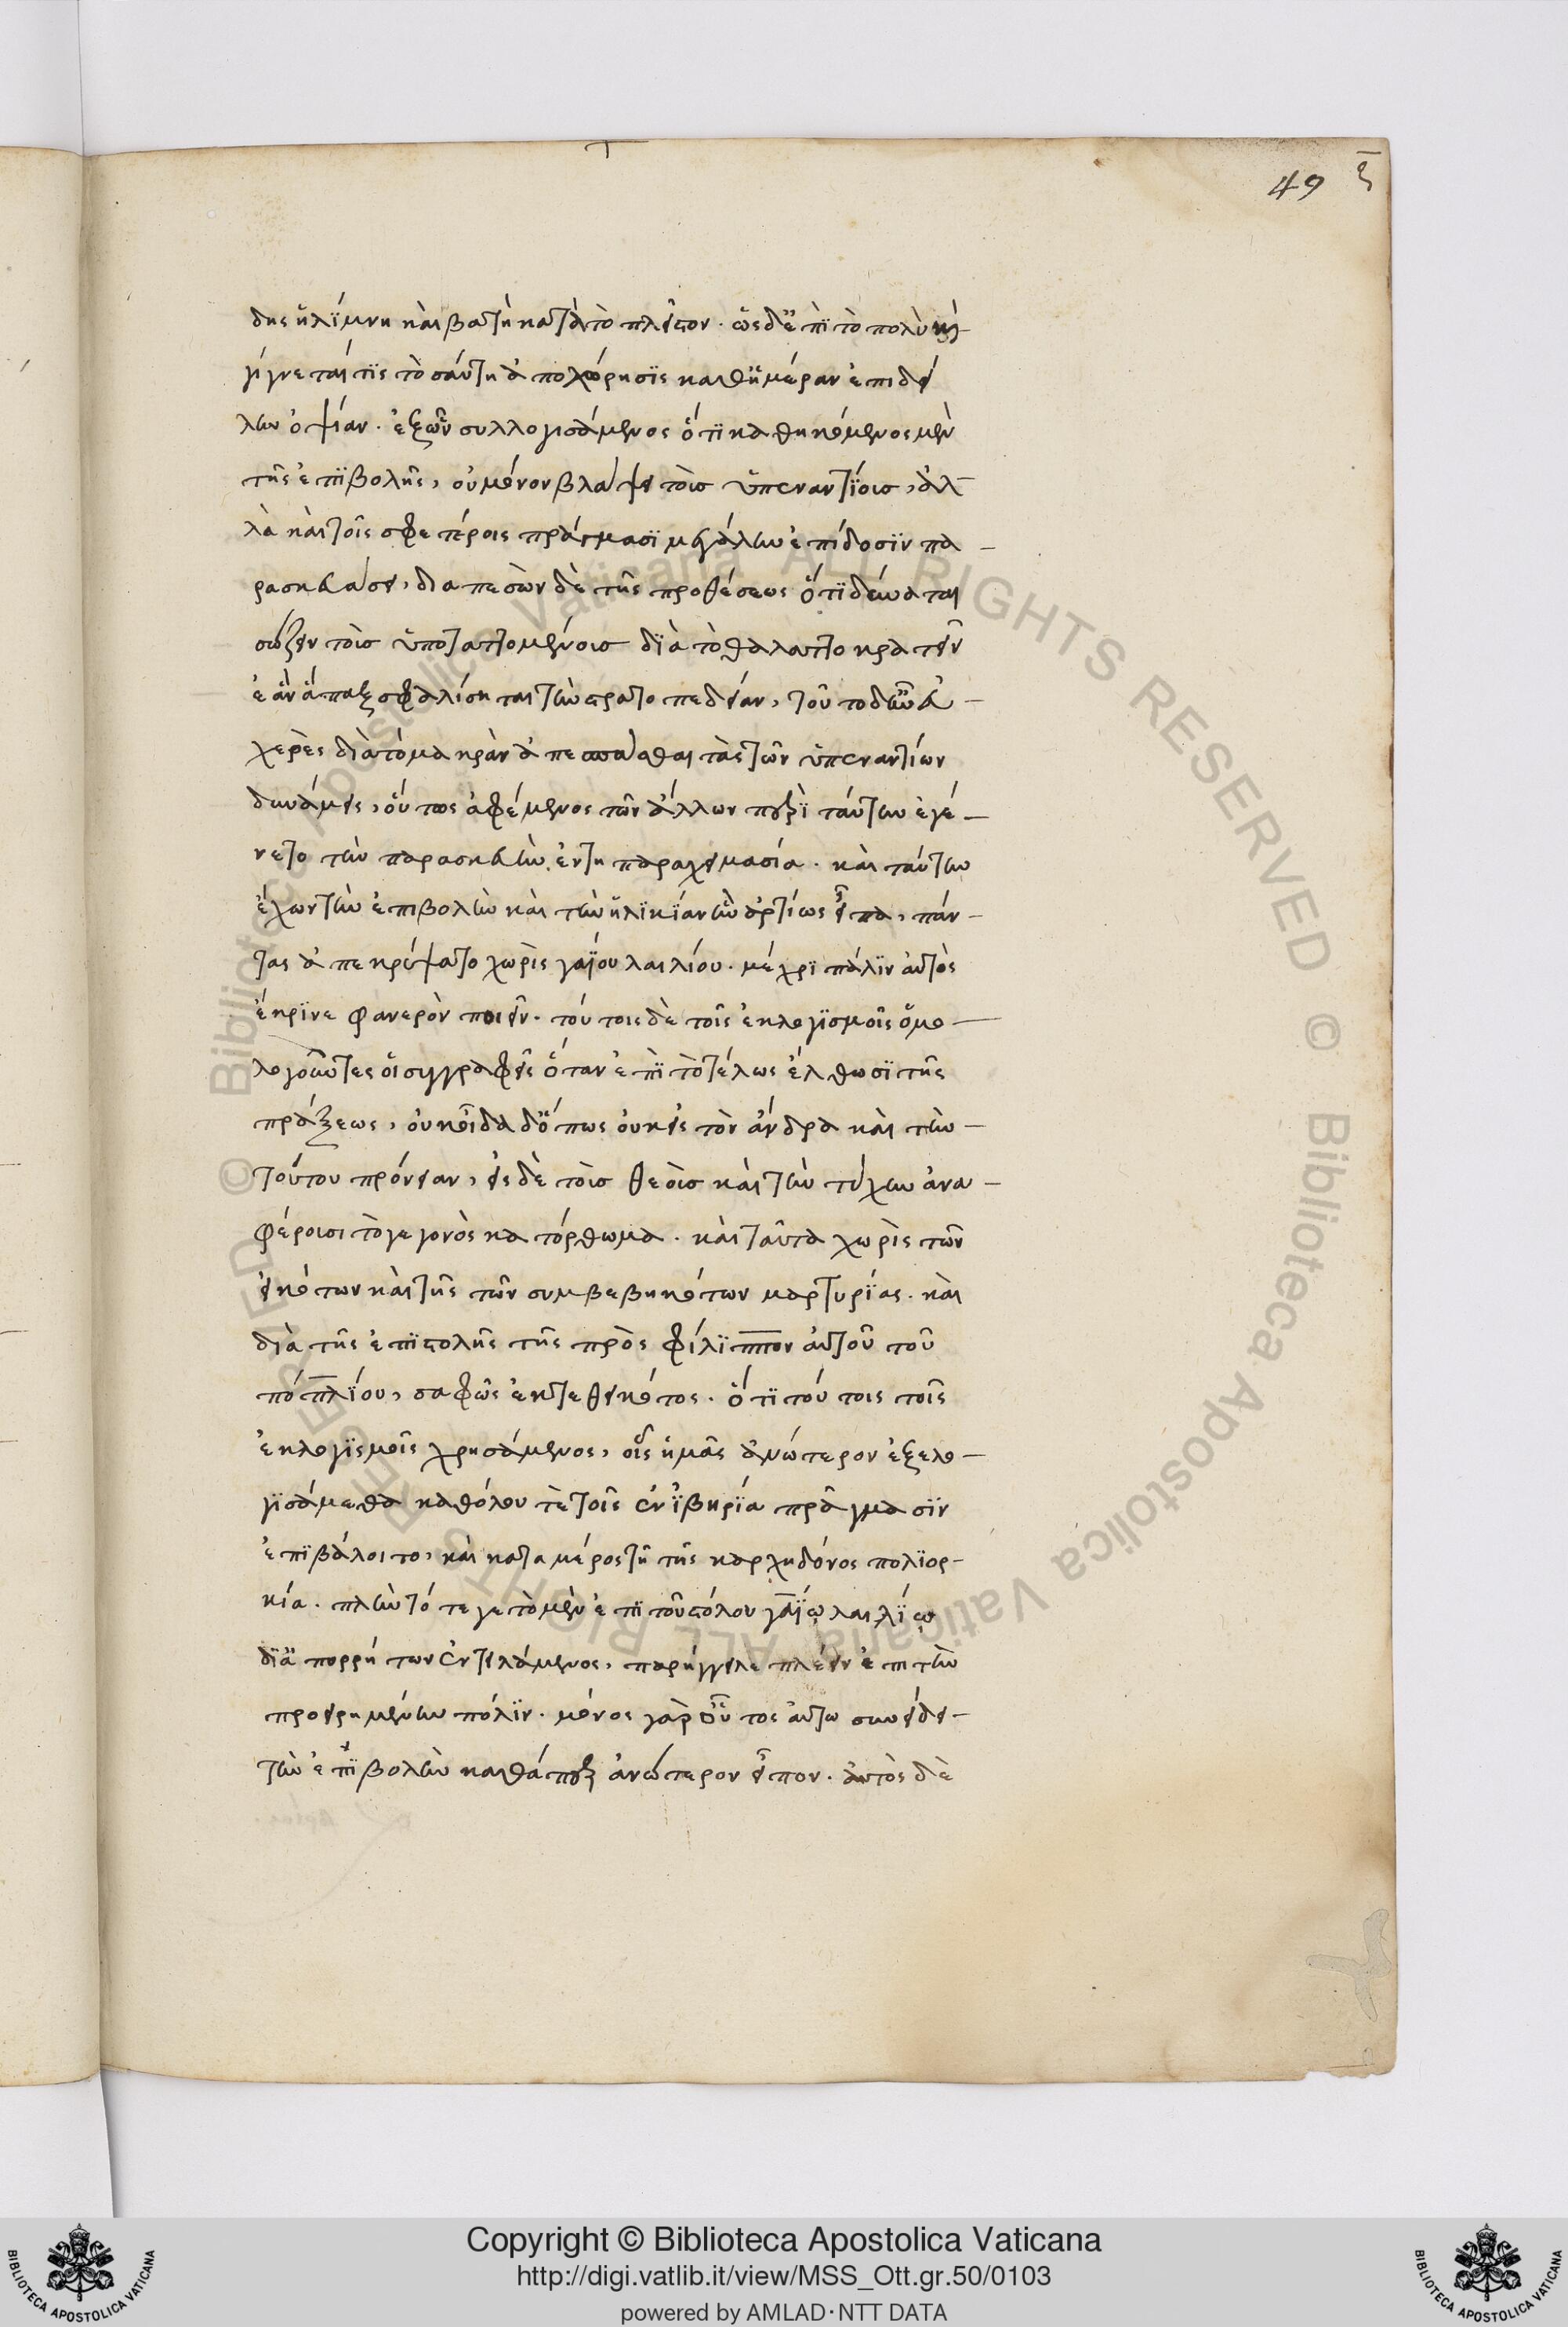 49 ξ
δης ἡ λΐμνη καὶ βατὴ κατὰ τὸ πλεῖστον. ὡς δ' ἐπὶ τὸ πολὺ καὶ
γίγνεται τις τὸσαύτη ἀποχώρησϊς καθ' ἡμέραν ἐπὶ δεί
λην ὀψίαν. ἐξ ὧν συλλογισάμενος ὅτι καθηκόμενος μὲν
τῆς ἐπϊβολῆς, οὐ μόνον βλάψει τοῖσ ὑπεναντίοισ, ἀλ
λὰ καὶ τοῖς σφετέροις πράγμασϊ μεγάλην ἐπίδοσϊν πα
ρασκευάσει, διαπεσὼν δὲ τῆς προθέσεως ὅτϊ δύναται
σώζειν τοῖσ ὑποταττομένοισ δϊὰ τὸ θαλαττοκρατεῖν
ἐὰν ἅπαξ ἀσφαλίσηται τὴν στρατοπεδείαν, τοῦτο δ' ἦν εὐ
χερὲς διὰ τὸ μακρὰν ἀπεσπάσθαι τὰς τῶν ὑπεναντίων
δυνάμεις, οὕτως ἀφέμενος τῶν ἄλλων περὶ ταύτην ἐγέ
νετο τὴν παρασκευὴν ἐν τῆ παραχειμασία. καὶ ταύτην
ἔχων τὴν ἐπιβολὴν καὶ τὴν ἡλϊκΐαν ἣν ἀρτίως εἶπα, πάν
τας ἀπεκρύψατο χωρὶς γαΐου λαιλίου. μέχρϊ πάλϊν αὐτὸς
ἔκρϊνε φανερὸν ποιεῖν. τούτοις δὲ τοῖς ἐκλογϊσμοῖς ὁμο
λογοῦντες οἱ συγγραφεῖς ὅταν ἐπὶ τὸ τέλως ἔλθωσϊ τῆς
πράξεως, οὐκ οἶδα δ' ὅπως οὐκ εἰς τὸν ἄνδρα καὶ τὴν
τούτου πρόνοιαν, εἰς δὲ τοὶσ θεοὶσ καὶ τὴν τύχην ἀνα
φέροισι τὸ γεγονὸς κατόρθωμα. καὶ ταῦτα χωρὶς τῶν
εἰκότων καὶ τῆς τῶν συμβεβηκότων μαρτυρΐας. καὶ
διὰ τῆς ἐπϊστολῆς τῆς πρὸς φίλϊππον αὐτοῦ τοῦ
ποπλΐου, σαφῶς ἐκτεθεικότος. ὅτϊ τούτοις τοῖς
ἐκλογϊςμοῖς χρησάμενος, οἷς ἡμᾶς ἀνώτερον ἐξελο
γϊσάμεθα καθόλου τὲ τοῖς ἐν ἰβηρΐα πράγμασϊν
ἐπϊβάλοιτο, καὶ κατα μέρος τῆ τῆς καρχηδόνος πολϊορ
κία. πλὴν τό τε γε τὸ μὲν ἐπὶ τοῦ στόλου γαΐῳ λαιλΐῳ
δϊ' ἀπορρήτων ἐντειλάμενος, παρήγγειλε πλέειν ἐπι τὴν
προειρημένην πόλϊν. μόνος γὰρ οὗτος αὐτω συνήδει
τὴν ἐπϊβολὴν καθάπερ ἀνώτερον εἶπον. αὐτὸς δὲ
Copyright © Biblioteca Apostolica Vaticana
http://digi.vatlib.it/view/MSS_Ott.gr.50/0103
powered by AMLAD·NTT DATA